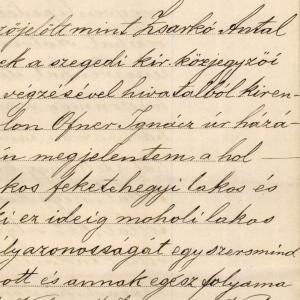 zőjelölt mint Zsarkó Antal
ek a szegedi kir. közjegyzői
végzésével hivatalból kiren-
lon Ofner Ignácz úr házá-
n megjelentem, a hol —
kos feketehegyi lakos és
ki ez ideig moholi lakos
lyazonosságát egyszersmind
ott és annak egész folyama